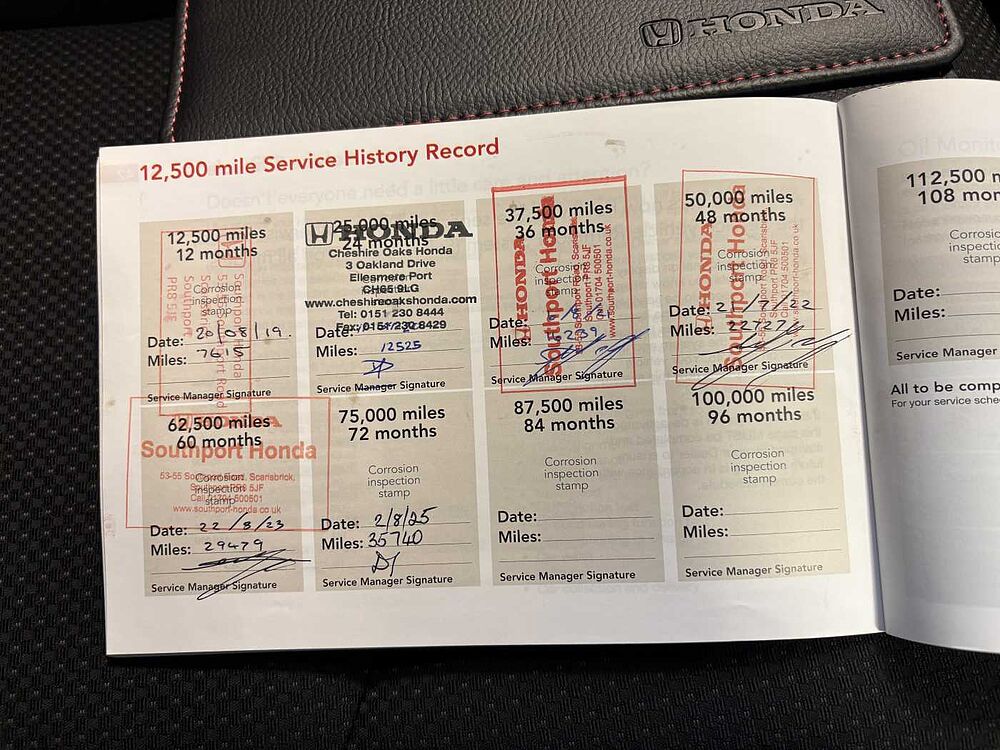 HONDA
12,500 mile Service History Record
12,500 miles
12 months
Corrosion
inspection
stamp
Southport Honda
Southport
PR8 5JF
Date: 20/08/19.
Miles: 7615
Service Manager Signature
25,000 miles
24 months
HONDA
Cheshire Oaks Honda
3 Oakland Drive
Ellesmere Port
CH65 9LG
www.cheshireoakshonda.com
Tel: 0151 230 8444
Fax: 0151 230 8429
Date:
Miles: 12525
Service Manager Signature
37,500 miles
36 months
Corrosion
inspection
stamp
HONDA
Southport Honda
Southport PR8 5JF
Call 01704 500501
www.southport-honda.co.uk
Date:
Miles:
Service Manager Signature
50,000 miles
48 months
Corrosion
inspection
stamp
HONDA
Southport Honda
Southport PR8 5JF
Call 01704 500501
www.southport-honda.co.uk
Date: 21/7/22
Miles: 22727
Service Manager Signature
62,500 miles
60 months
HONDA
Southport Honda
Corrosion
inspection
stamp
53-55 Scarisbrick,
Southport PR8 5JF
Call 01704 500501
www.southport-honda.co.uk
Date: 22/8/23
Miles: 29479
Service Manager Signature
75,000 miles
72 months
Corrosion
inspection
stamp
Date: 2/8/25
Miles: 35740
Service Manager Signature
87,500 miles
84 months
Corrosion
inspection
stamp
Date:
Miles:
Service Manager Signature
100,000 miles
96 months
Corrosion
inspection
stamp
Date:
Miles:
Service Manager Signature
112,500 m
108 mor
Corrosi
inspecti
stamp
Date:
Miles:
Service Manager
All to be comp
For your service sche